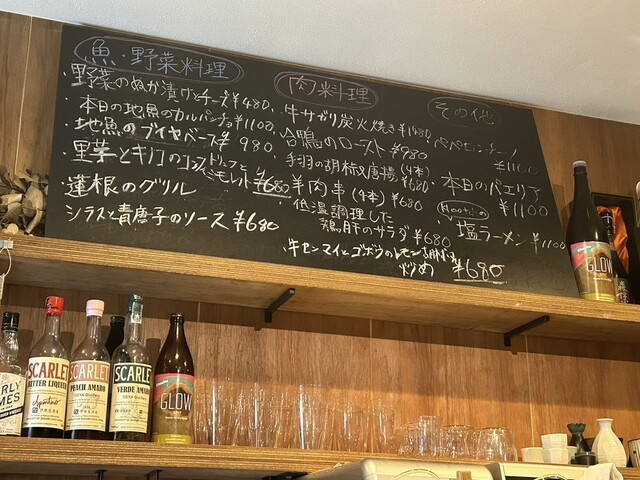 魚・野菜料理
・野菜のぬか漬けとチーズ ¥480
・本日の地魚のカルパッチョ ¥1100
・地魚のブイヤベース ¥980
・里芋とキノコのゴルゴンドルーフと
ミモレット ¥680
蓮根のグリル
シラスと青唐子のソース ¥680
肉料理
牛サガリ炭火焼き ¥1980
合鴨のロースト ¥980
手羽の胡椒唐揚(4本) ¥680
羊肉串(4本) ¥680
低温調理した
鶏肝のサラダ ¥680
牛センマイとゴボウのレモン
炒め ¥680
その他
ペペロンチーノ
¥1100
本日のパエリア
¥1100
塩ラーメン ¥1100
GLOW
SCARLET
BITTER LIQUEUR
SCARLET
PEACH AMARO
SCARLET
VERDE AMARO
GLOW